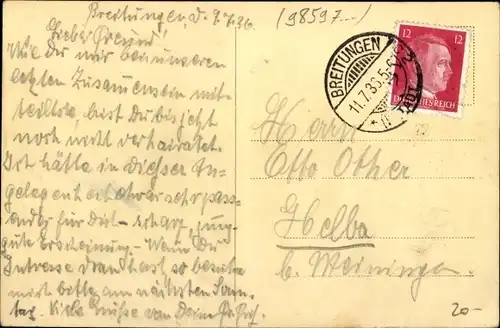 Breitungen, d. 9.7.36.
(98597...)
Lieber Freund!
Wie Du mir bei unseren
letzten Zusammensein mit-
teiltest, bist Du bis jetzt
noch nicht verheiratet.
Ich hätte in dieser An-
gelegenheit etwas sehr pass-
endes für Dich -
gute Erscheinung - Wenn Du
Interesse dran hast, so besuche
mich bitte am nächsten Sonn-
tag. Viele Grüße von Deinem
BREITUNGEN
11.7.36.5-6
12 12
DEUTSCHES REICH
Herrn
Otto Other
Helba
b. Meiningen
20-